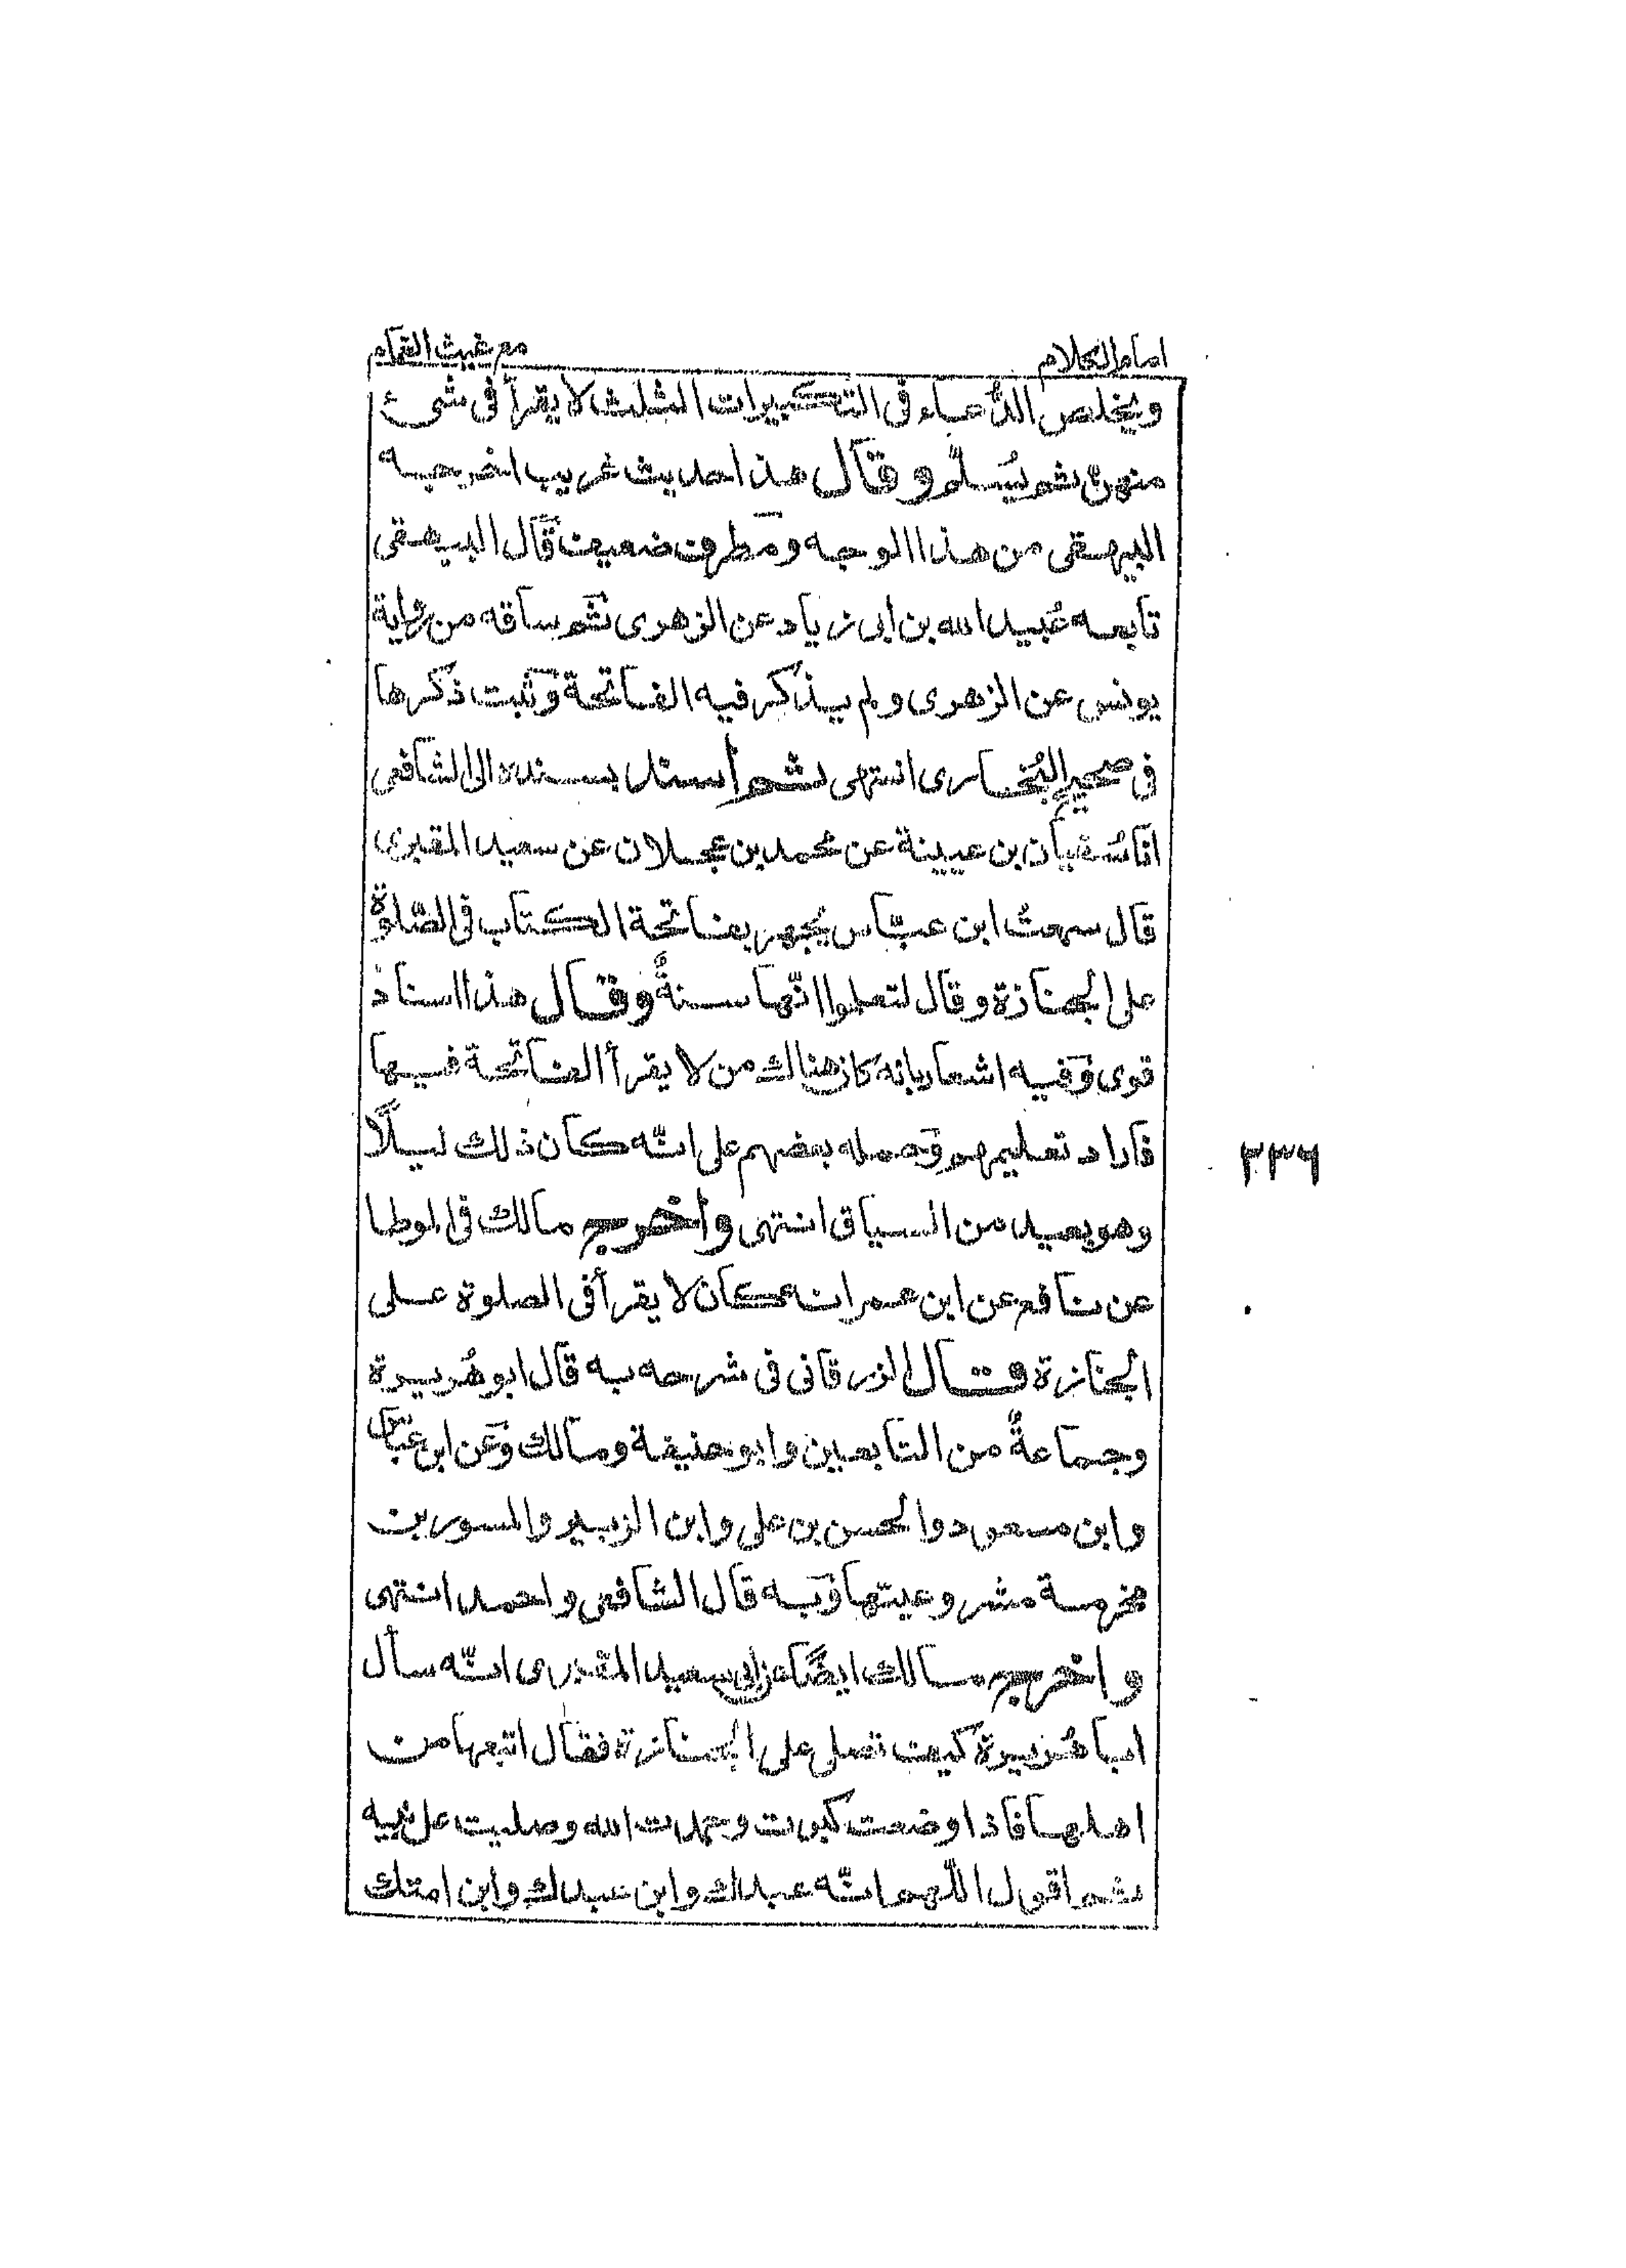 امام الكلام
مع غيث الغمام
ويخلص الدُّعاء فى التكبيرات الثلث لا يقرأ فى شئ
منهنّ ثم يُسلّم وقال هذا حديث غريب اخرجه
البيهقى من هذا الوجه ومطرف ضعيف قال البيهقى
تابعه عُبيد الله بن ابى زياد عن الزهرى ثم ساقه من رواية
يونس عن الزهرى ولم يذكر فيه الفاتحة وثبت ذكرها
فى صحيح البُخارى انتهى ثم أسند بسنده الى الشافعى
انا سُفيان بن عيينة عن محمد بن عجلان عن سعيد المقبرى
قال سمعتُ ابن عبّاس يُجهر بفاتحة الكتاب فى الصّلوة
على الجنازة وقال لتعلموا انّها سنةٌ وقال هذا اسناد
قوى وفيه اشعار بانه كان هناك من لا يقرأ الفاتحة فيها
فاراد تعليمهم وحمله بعضهم على انّه كان ذلك ليلًا
وهو بعيد من السياق انتهى وأخرج مالك فى الموطا
عن نافع عن ابن عمر انه كان لا يقرأ فى الصلوة على
الجنازة قال الزرقانى فى شرحه به قال ابو هُريرة
وجماعةٌ من التابعين وابو حنيفة ومالك وعن ابن عباس
وابن مسعود والحسن بن على وابن الزبير والمسور بن
مخرمة مشروعيتها وبه قال الشافعى واحمد انتهى
واخرج مالك ايضًا عن ابى سعيد المقبرى انّه سأل
ابا هُريرة كيف تصلى على الجنازة فقال اتبعها من
اهلها فاذا وضعت كبرت وحمدت الله وصليت على نبيه
ثم اقول اللّهم انّه عبدك وابن عبدك وابن امتك
٢٣٦